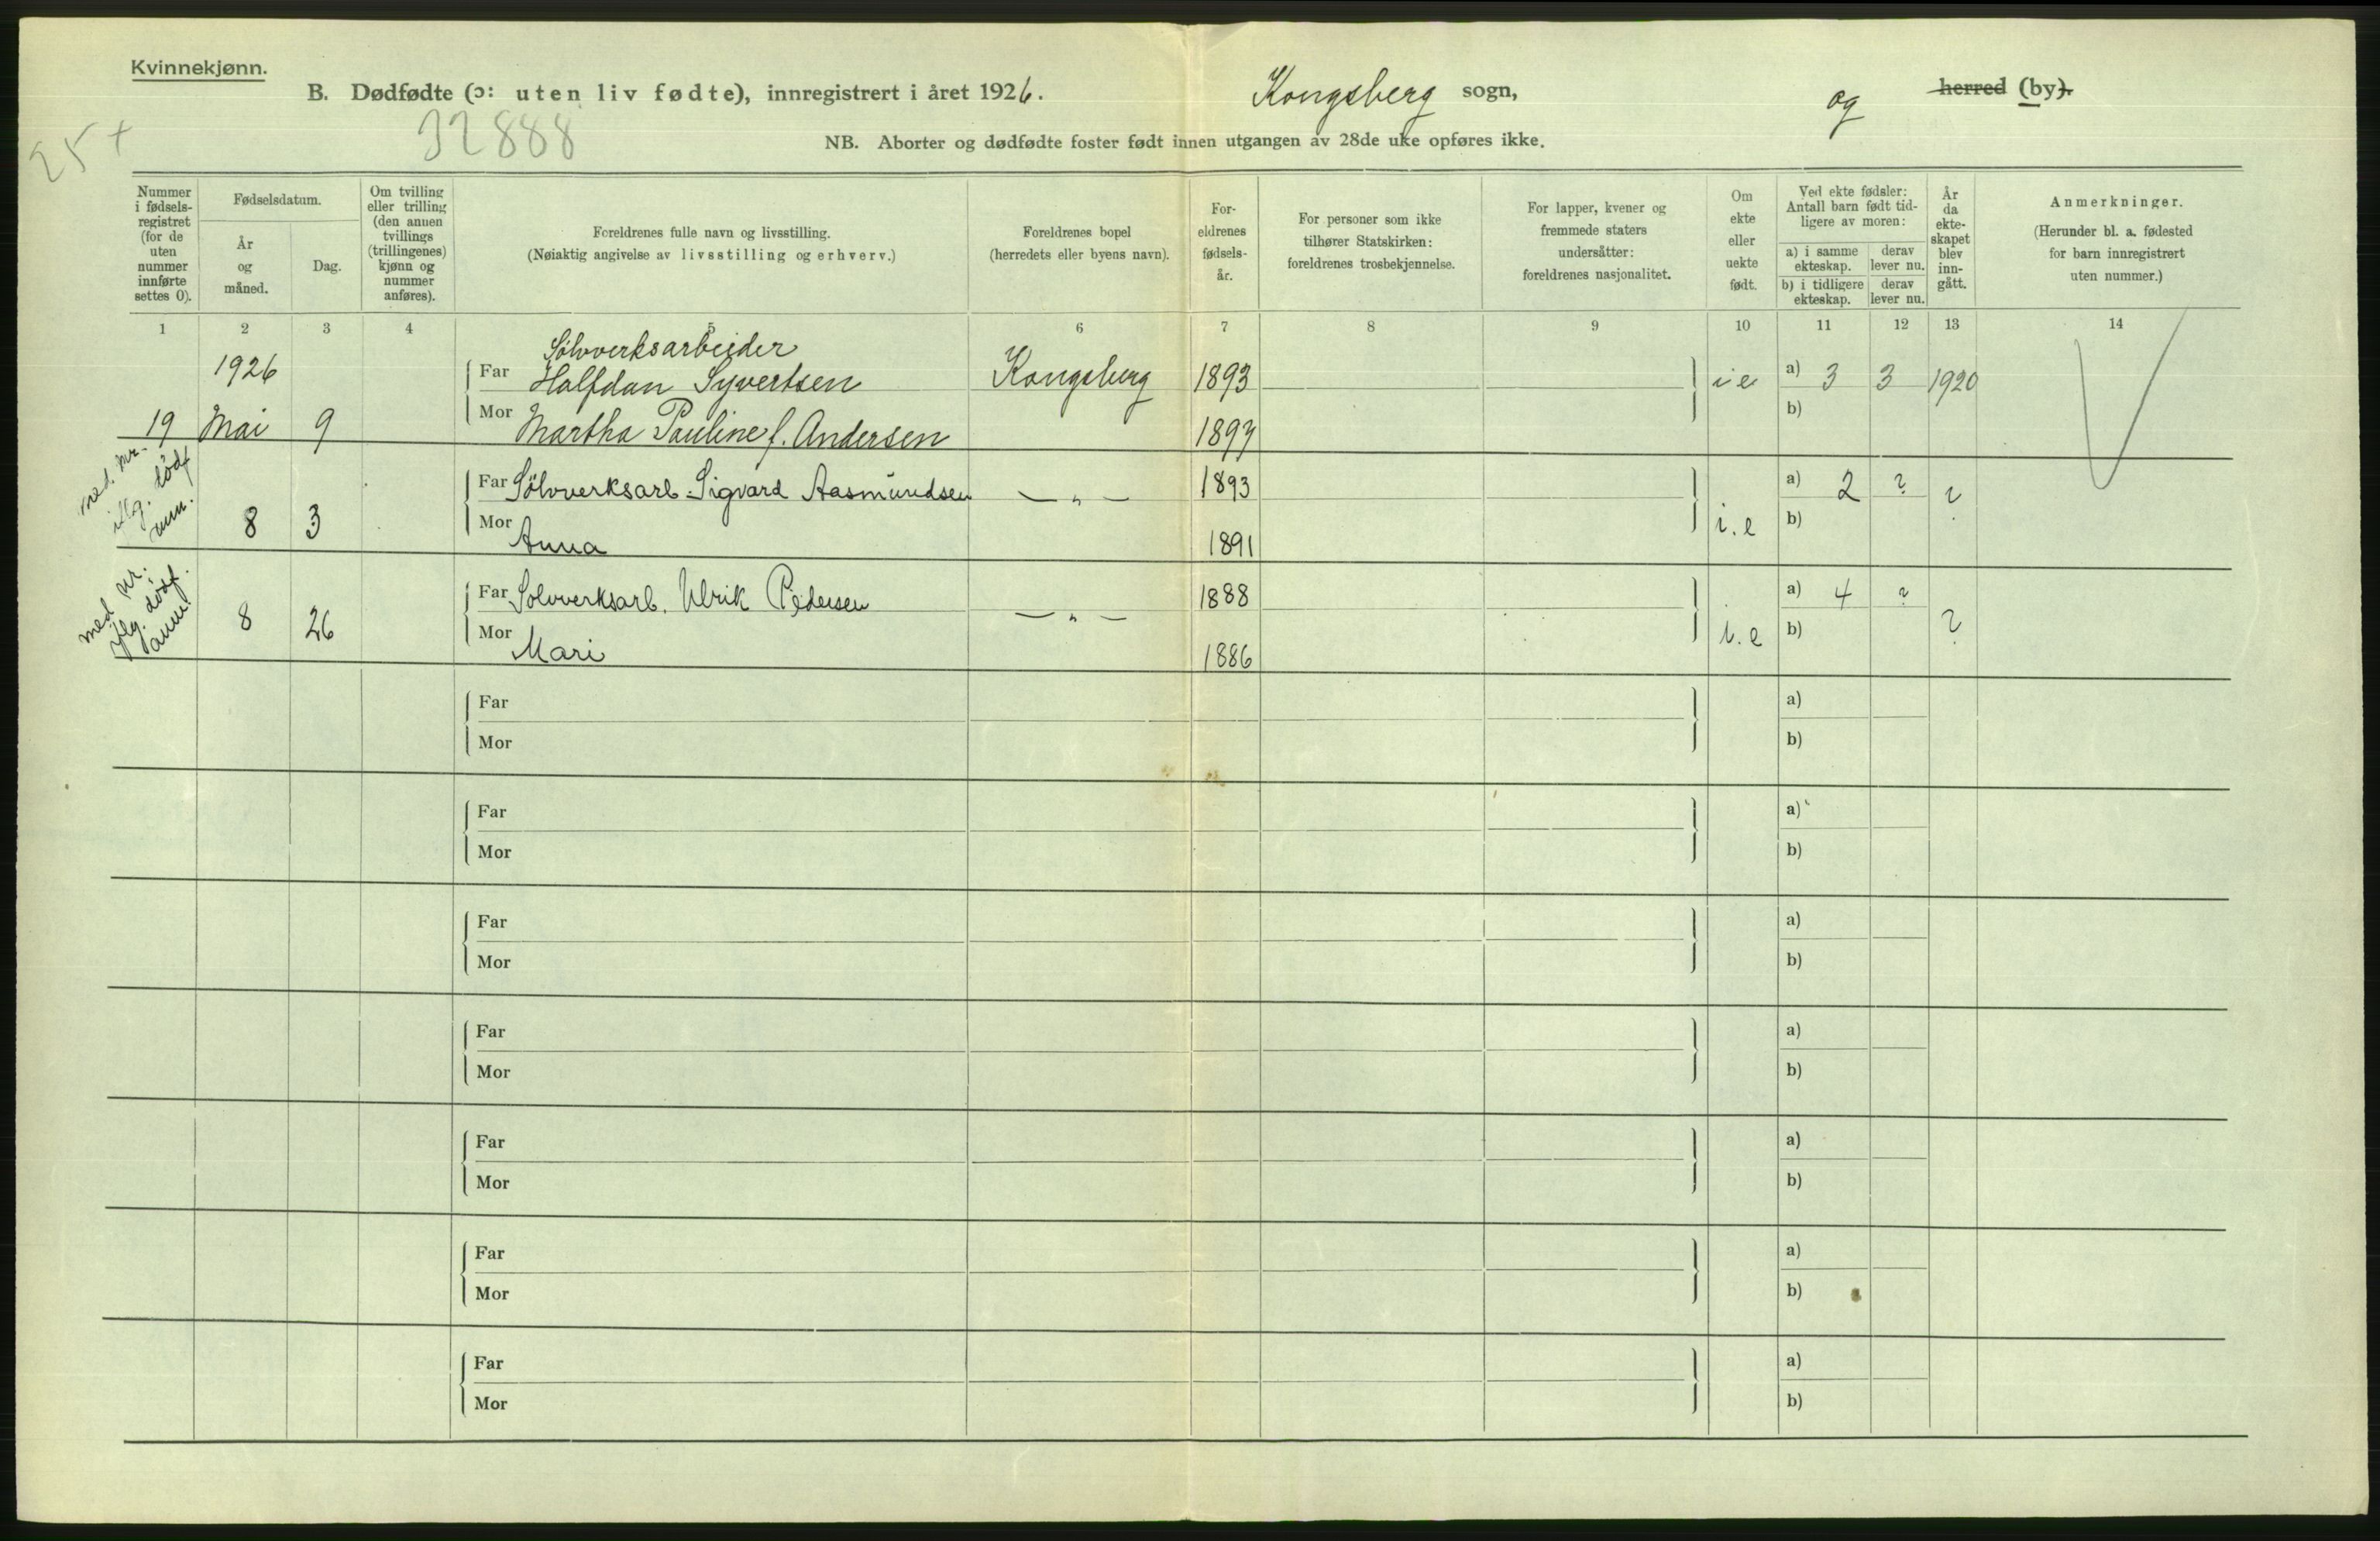 Kvinnekjønn.
B. Dødfødte (ɔ: uten liv fødte), innregistrert i året 1926. Kongsberg sogn, og herred (by).
25+
32888
NB. Aborter og dødfødte foster født innen utgangen av 28de uke opføres ikke.
Nummer i fødsels-registret (for de uten nummer innførte settes 0).
Fødselsdatum.
År og måned.
Dag.
Om tvilling eller trilling (den annen tvillings (trillingenes) kjønn og nummer anføres).
Foreldrenes fulle navn og livsstilling.
(Nøiaktig angivelse av livsstilling og erhverv.)
Foreldrenes bopel
(herredets eller byens navn).
For-eldrenes fødsels-år.
For personer som ikke tilhører Statskirken: foreldrenes trosbekjennelse.
For lapper, kvener og fremmede staters undersåtter: foreldrenes nasjonalitet.
Om ekte eller uekte født.
Ved ekte fødsler: Antall barn født tid-ligere av moren:
a) i samme ekteskap.
derav lever nu.
b) i tidligere ekteskap.
derav lever nu.
År da ekte-skapet blev inn-gått.
Anmerkninger.
(Herunder bl. a. fødested for barn innregistrert uten nummer.)
1 2 3 4 5 6 7 8 9 10 11 12 13 14
Sølvverksarbeider
1926 Far Halfdan Syvertsen Kongsberg 1893 i e a) 3 3 1920
19 Mai 9 Mor Martha Pauline f. Andersen 1897 b)
med nr. iflg. dødf anm.
Far Sølvverksarb. Sigvard Aasmundsen — " — 1893 a) 2 ? ?
8 3 Mor Anna 1891 i.e b)
med nr. iflg. dødf. anm.
Far Sølvverksarb. Ulrik Pedersen — " — 1888 a) 4 ? ?
8 26 Mor Mari 1886 i.e b)
Far a)
Mor b)
Far a)
Mor b)
Far a)
Mor b)
Far a)
Mor b)
Far a)
Mor b)
Far a)
Mor b)
Far a)
Mor b)